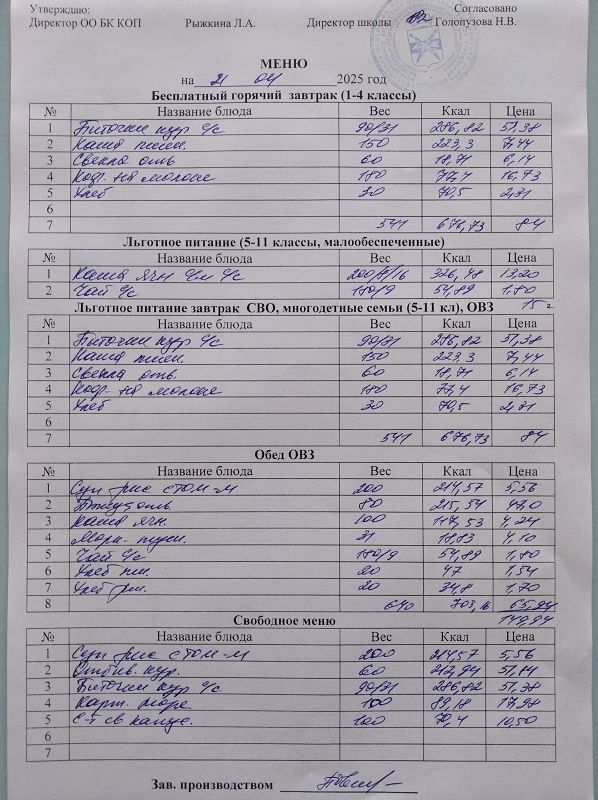 Утверждаю: Согласовано
Директор ОО БК КОП Рыжкина Л.А. Директор школы Голопузова Н.В.
МЕНЮ
на 21 04 2025 год
Бесплатный горячий завтрак (1-4 классы)
№ Название блюда Вес Ккал Цена
1 Биточки кур с/с 90/31 286,82 51,38
2 Каша пшен. 150 223,3 7,44
3 Свекла отв 60 18,71 6,14
4 Коф. на молоке 180 77,4 16,73
5 Хлеб 30 70,5 2,31
6
7 541 676,73 84
Льготное питание (5-11 классы, малообеспеченные)
1 Каша ячн с/м с/с 200/5/16 326,48 13,20
2 Чай с/с 180/9 54,89 1,80
Льготное питание завтрак СВО, многодетные семьи (5-11 кл), ОВЗ 15
№ Название блюда Вес Ккал Цена
1 Биточки кур с/с 90/31 286,82 51,38
2 Каша пшен. 150 223,3 7,44
3 Свекла отв. 60 18,71 6,14
4 Коф. на молоке 180 77,4 16,73
5 Хлеб 30 70,5 2,31
6
7 541 676,73 84
Обед ОВЗ
№ Название блюда Вес Ккал Цена
1 Суп рис с том-м 200 214,57 5,56
2 80 215,54
3 Каша ячн. 100 117,53 4,24
4 Морк. туш. 31 18,83 4,10
5 Чай с/с 180/9 54,89 1,80
6 Хлеб пш. 20 47 1,54
7 Хлеб рж. 20 34,8 1,70
8 640 703,16 65,94
149,94
Свободное меню
№ Название блюда Вес Ккал Цена
1 Суп рис с том-м 200 214,57 5,56
2 Отбив. кур. 60 212,94 51,14
3 Биточки кур с/с 90/31 286,82 51,38
4 Карт. пюре 100 89,18 17,98
5 С-т св капус. 100 72,4 10,50
6
7
Зав. производством